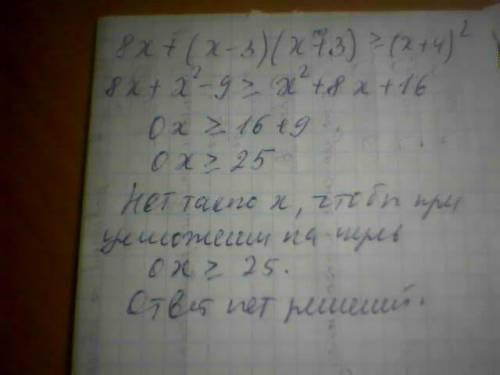 8x + (x-3)(x+3) ≥ (x+4)²
8x + x² - 9 ≥ x² + 8x + 16
0x ≥ 16+9
0x ≥ 25
Нет такого x, чтобы при
умножении на нуль
0x ≥ 25.
Ответ нет решений.